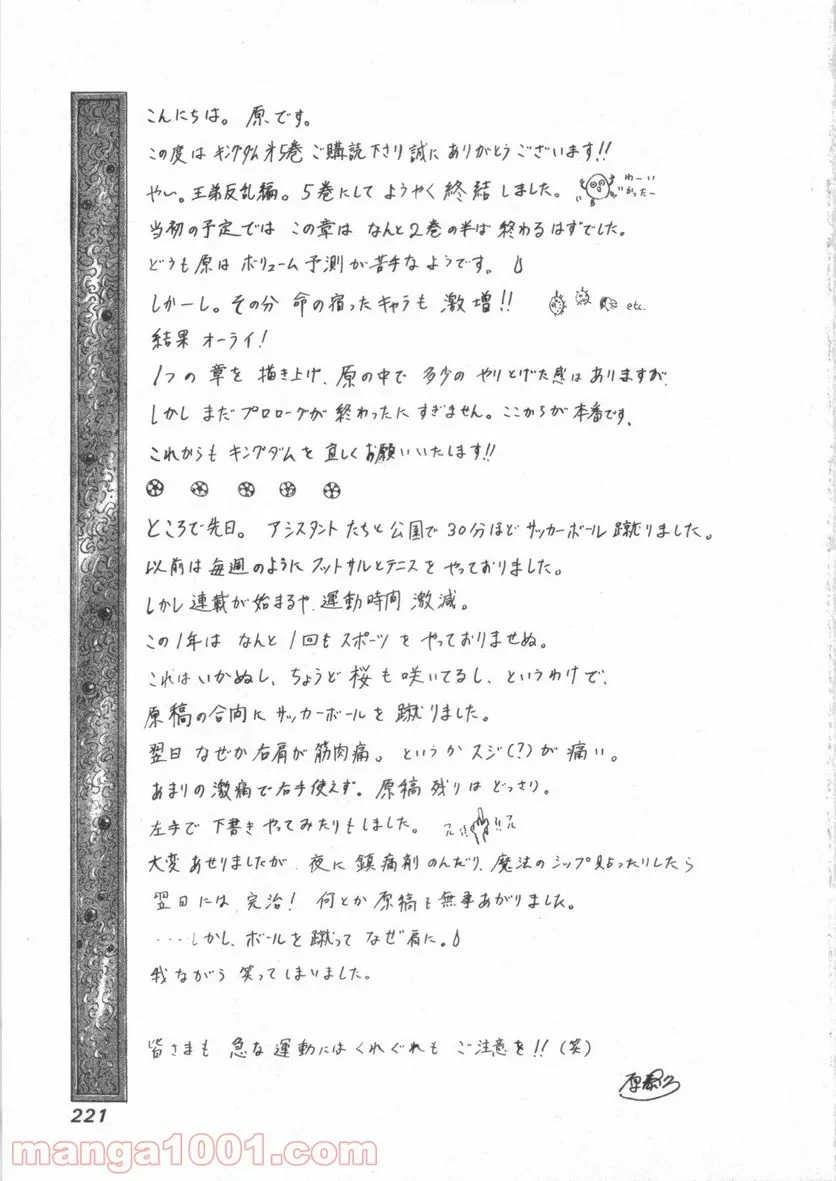 こんにちは。原です。
この度は キングダム第5巻 ご購読下さり誠にありがとうございます!!
やい。王弟反乱編。5巻にして ようやく 終結しました。
わーい
当初の予定では この章は なんと2巻の半ば 終わるはずでした。
どうも原は ボリューム予測が苦手なようです。
しかーし。その分 命の宿ったキャラも 激増!! etc.
結果 オーライ!
1つの 章を 描き上げ、原の中で 多少の やりとげた感は ありますが、
しかし まだ プロローグが 終わったに すぎません。ここからが 本番です。
これからも キングダムを 宜しくお願いいたします!!
ところで先日。 アシスタントたちと公園で 30分ほど サッカーボール 蹴りました。
以前は 毎週のように フットサルとテニスを やっておりました。
しかし 連載が 始まるや、運動時間 激減。
この1年は なんと 1回も スポーツを やっておりませぬ。
これはいかぬし、ちょうど 桜も 咲いてるし、というわけで、
原稿の合間に サッカーボールを 蹴りました。
翌日 なぜか 右肩が 筋肉痛。 というか スジ(?)が 痛い。
あまりの 激痛で 右手 使えず。 原稿 残りは どっさり。
左手で 下書き やってみたりもしました。
大変 あせりましたが、夜に 鎮痛剤 のんだり、魔法の シップ 貼ったりしたら
翌日には 完治! 何とか 原稿も 無事 あがりました。
‥‥しかし、ボールを 蹴って なぜ 肩に。
我ながら 笑ってしまいました。
皆さまも 急な 運動には くれぐれも ご注意を!!(笑)
原泰久
221
manga1001.com